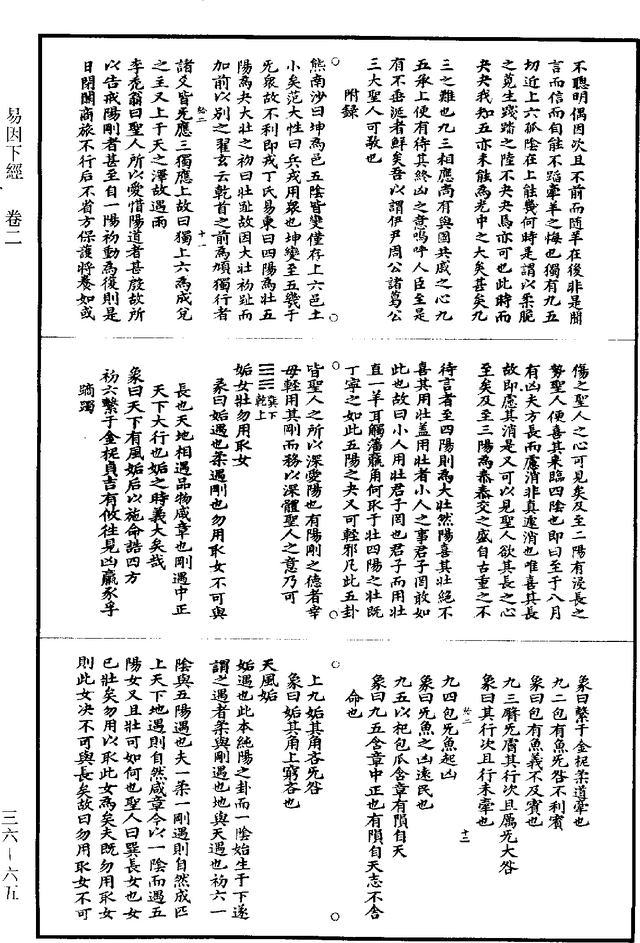 易因下經　卷二
不聰明偶因次且不前而隨羊在後非是簡
言而信而自能不蹈牽羊之悔也獨有九五
切近上六孤陰在上能幾何時是謂以柔脆
之莧生踐踏之陸不夬夬焉亦可也此時而
夬夬我知五亦未能為光中之大矣甚矣九
三之難也九三相應尚有與國共戚之心九
五承上便有待其終凶之意嗚呼人臣至是
有不垂涎者鮮矣吾以謂伊尹周公諸葛公
三大聖人可敬也
附録
熊南沙曰坤為邑五陰皆變僅存上六邑土
小矣范大性曰兵戎用衆也坤變至五幾于
旡衆故不利即戎丁氏易東曰四陽為壯五
陽為夬大壯之初曰壯趾故因大壯初趾而
加前以別之翟玄云乾首之前為頄獨行者
十一
諸爻皆旡應三獨應上故曰獨上六為成兌
之主又上于天之澤故遇雨
李禿翁曰聖人所以愛惜陽道者甚殷故所
以告戒陽剛者甚至自一陽初動為復則是
日閉關商旅不行后不省方保護將養如或
傷之聖人之心可見矣及至二陽有浸長之
勢聖人便喜其來臨四陰也即曰至于八月
有凶夫方長而慮消非真遽消也唯喜其長
故即慮其消是又可以見聖人欲其長之心
至矣及至三陽為泰泰交之盛自古重之不
待言者至四陽則為大壯然陽喜其壯絕不
喜其用壯蓋用壯者小人之事君子罔敢如
此也故曰小人用壯君子罔也君子而用壯
直一羊耳觸藩羸角何取于壯四陽之壯既
丁寧之如此五陽之夬又可輕邪凡此五卦
皆聖人之所以深愛陽也有陽剛之德者幸
毋輕用其剛而務以深體聖人之意乃可
巽下乾上
姤女壯勿用取女
彖曰姤遇也柔遇剛也勿用取女不可與
長也天地相遇品物咸章也剛遇中正
天下大行也姤之時義大矣哉
象曰天下有風姤后以施命誥四方
初六繫于金柅貞吉有攸往見凶羸豕孚
蹢躅
象曰繫于金柅柔道牽也
九二包有魚旡咎不利賓
象曰包有魚義不及賓也
九三臀旡膚其行次且厲旡大咎
象曰其行次且行未牽也
十二
九四包旡魚起凶
象曰旡魚之凶遠民也
九五以杞包瓜含章有隕自天
象曰九五含章中正也有隕自天志不舍
命也
上九姤其角吝旡咎
象曰姤其角上窮吝也
天風姤
姤遇也此本純陽之卦而一陰始生于下遂
謂之遇者柔與剛遇也地與天遇也初六一
陰與五陽遇也夫一柔一剛遇則自然成匹
上天下地遇則自然咸章今以一陰而遇五
陽女又且壯可如何也聖人曰巽長女也女
已壯矣勿用以取此女為矣夫既勿用取女
則此女决不可與長矣故曰勿用取女不可
三六—六五